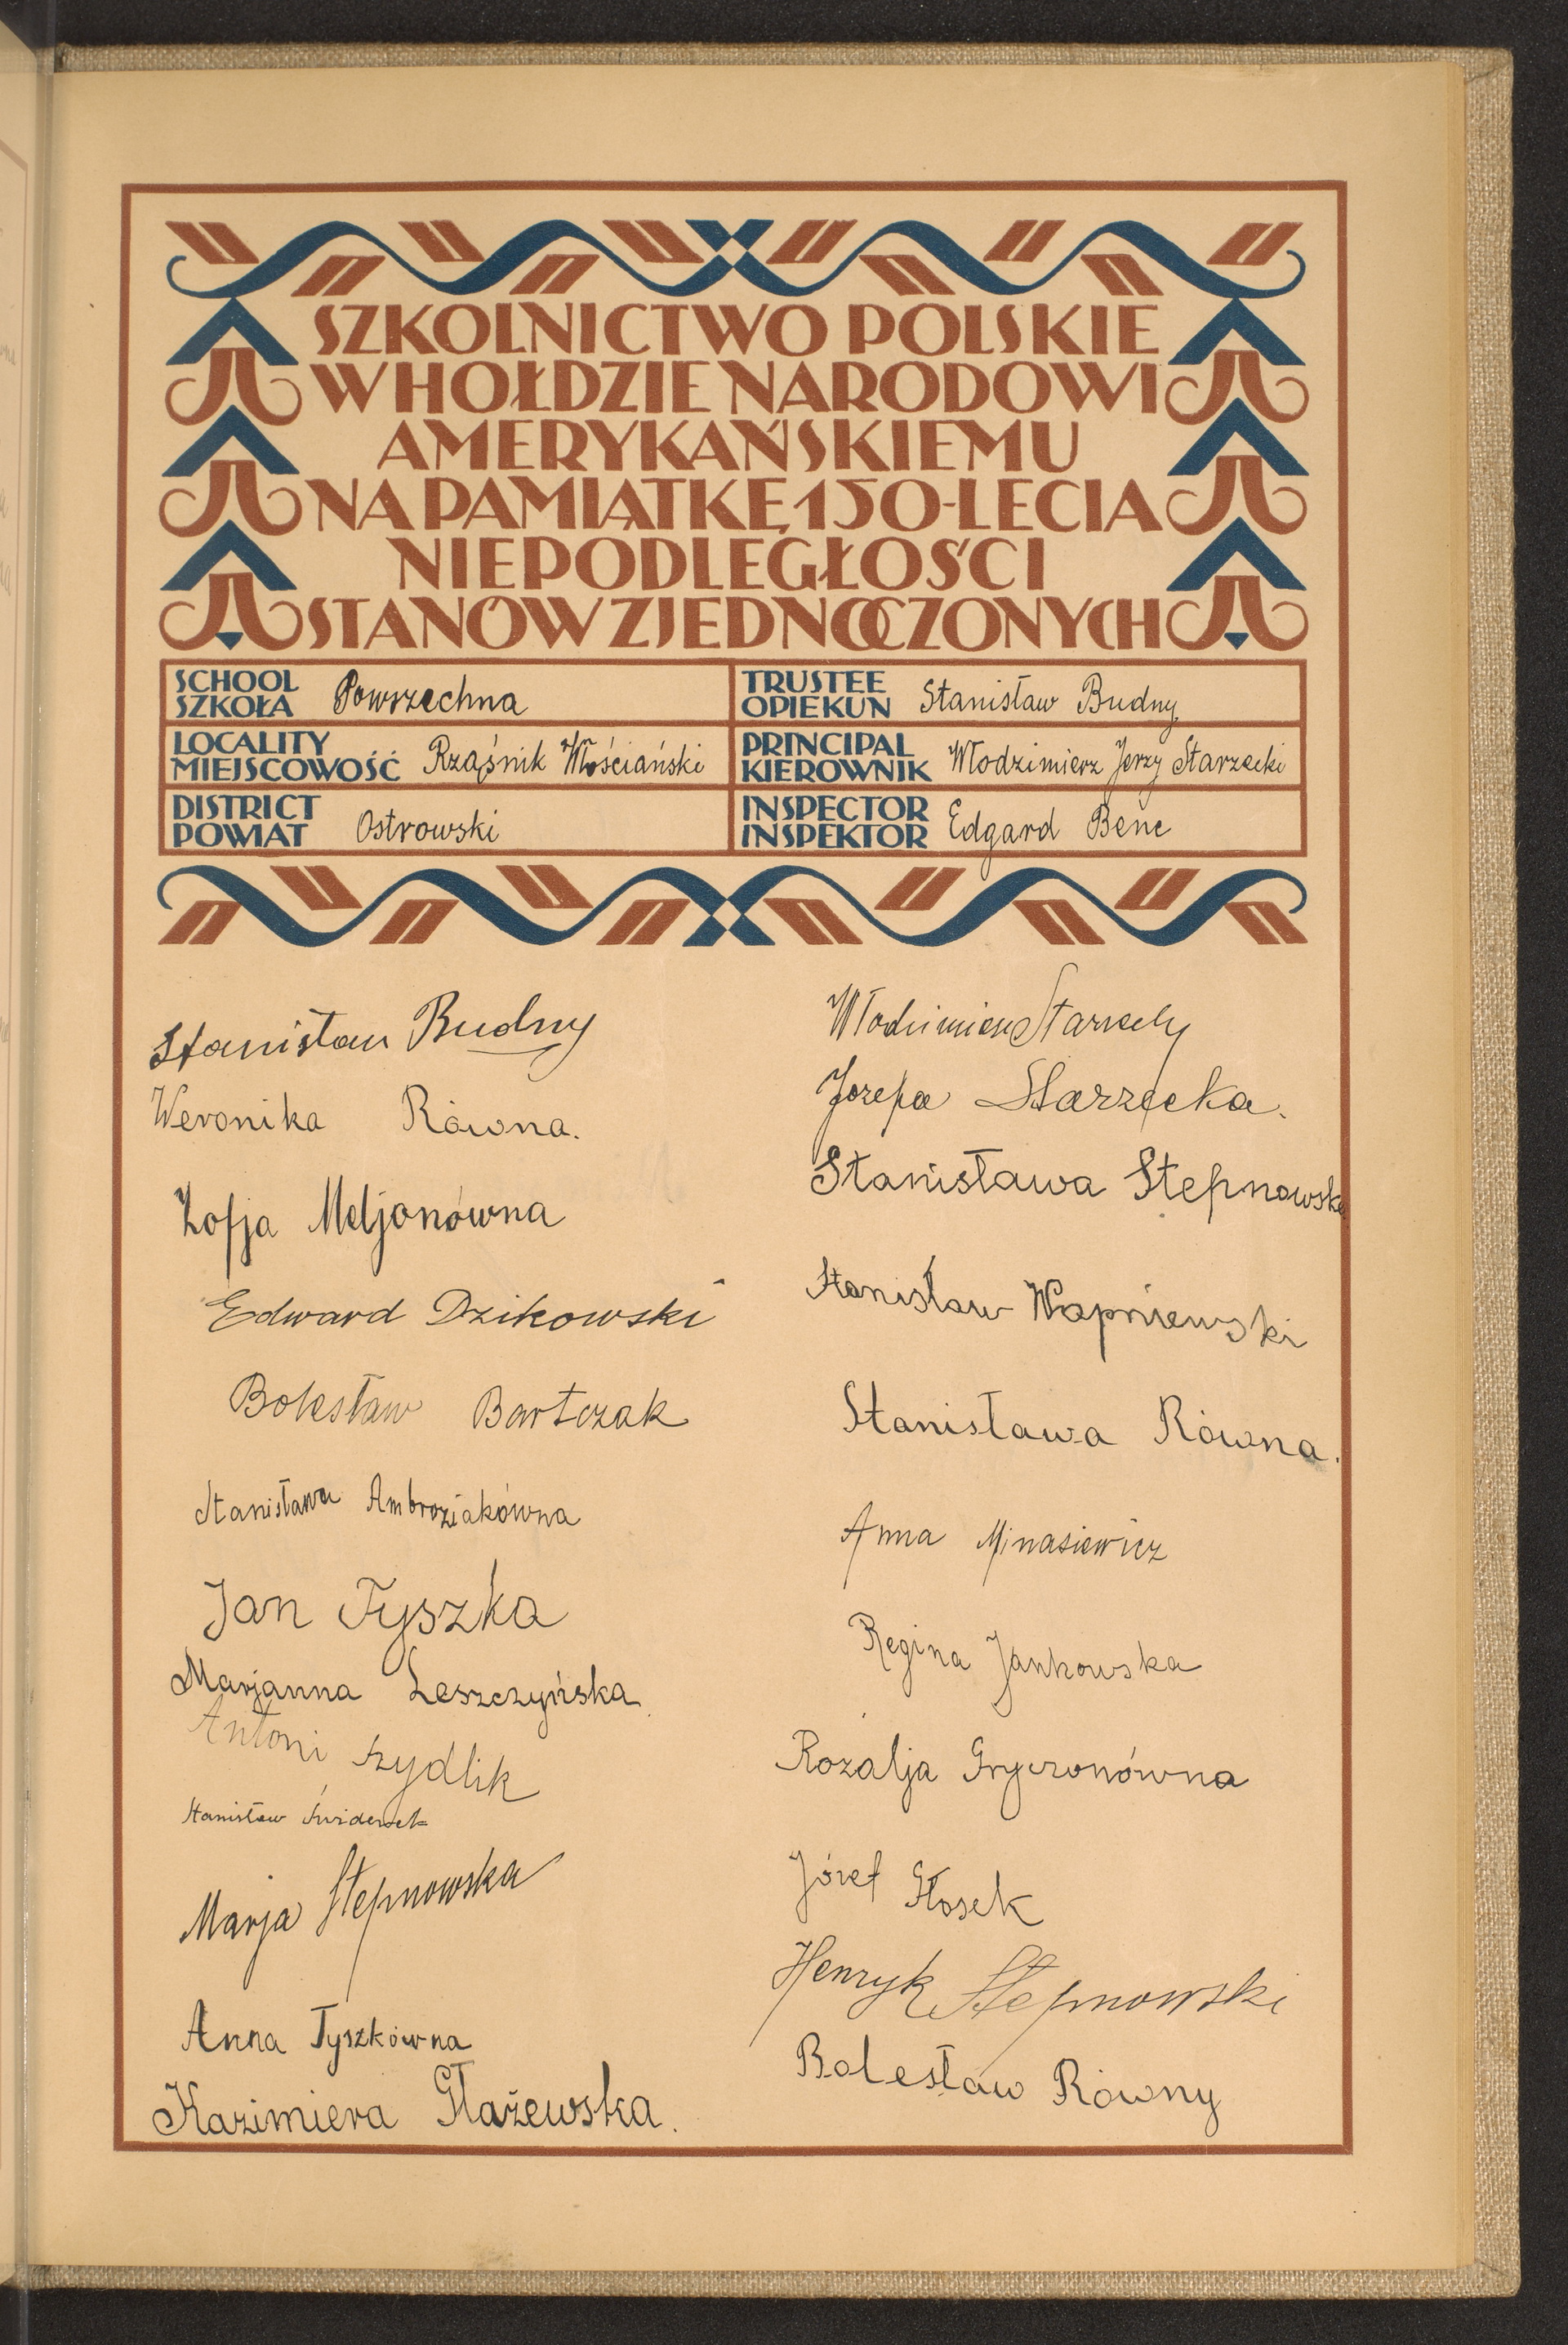 SZKOLNICTWO POLSKIE
W HOŁDZIE NARODOWI
AMERYKAŃSKIEMU
NA PAMIĄTKĘ 150-LECIA
NIEPODLEGŁOŚCI
STANÓW ZJEDNOCZONYCH
SCHOOL
SZKOŁA Powszechna
TRUSTEE
OPIEKUN Stanisław Budny
LOCALITY
MIEJSCOWOŚĆ Rząśnik Włościański
PRINCIPAL
KIEROWNIK Włodzimierz Jerzy Starzecki
DISTRICT
POWIAT Ostrowski
INSPECTOR
INSPEKTOR Edgard Bene
Stanisław Budny
Weronika Równa.
Zofja Meljonówna
Edward Dzikowski
Bolesław Bartczak
Stanisława Ambroziakówna
Jan Tyszka
Marjanna Leszczyńska
Antoni Szydlik
Stanisław Świderek
Marja Stepnowska
Anna Tyszkówna
Kazimiera Głażewska.
Włodzimierz Starzecki
Jozefa Starzecka.
Stanisława Stepnowska
Stanisław Wapniewski
Stanisława Równa.
Anna Minasiewicz
Regina Jankowska
Rozalja Gryczonówna
Józef Głosek
Henryk Stepnowski
Bolesław Równy